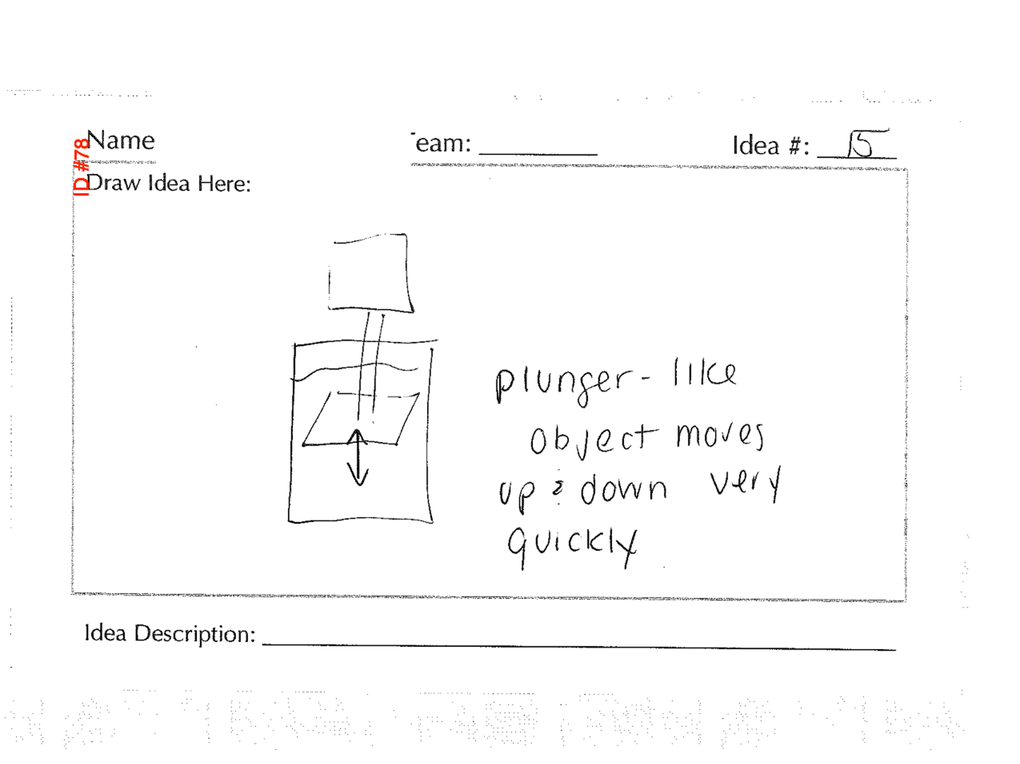 ID #78
Name
eam:
Idea #: 15
Draw Idea Here:
plunger-like
object moves
up & down very
quickly
Idea Description: